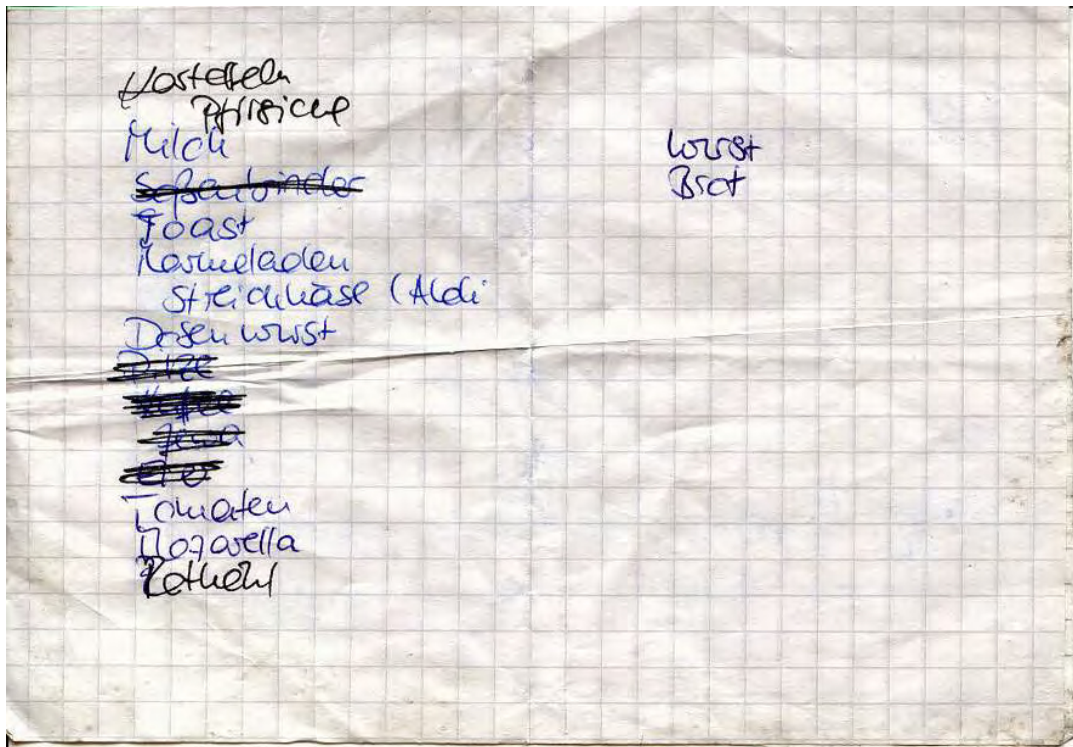 Kartoffeln
Pfirsiche
Milch
Soßenbinder
Toast
Marmeladen
Streichkäse (Aldi
Dosenwurst
Pilze
Kaffee
Eier
Tomaten
Mozarella
Rotkohl
Wurst
Brot